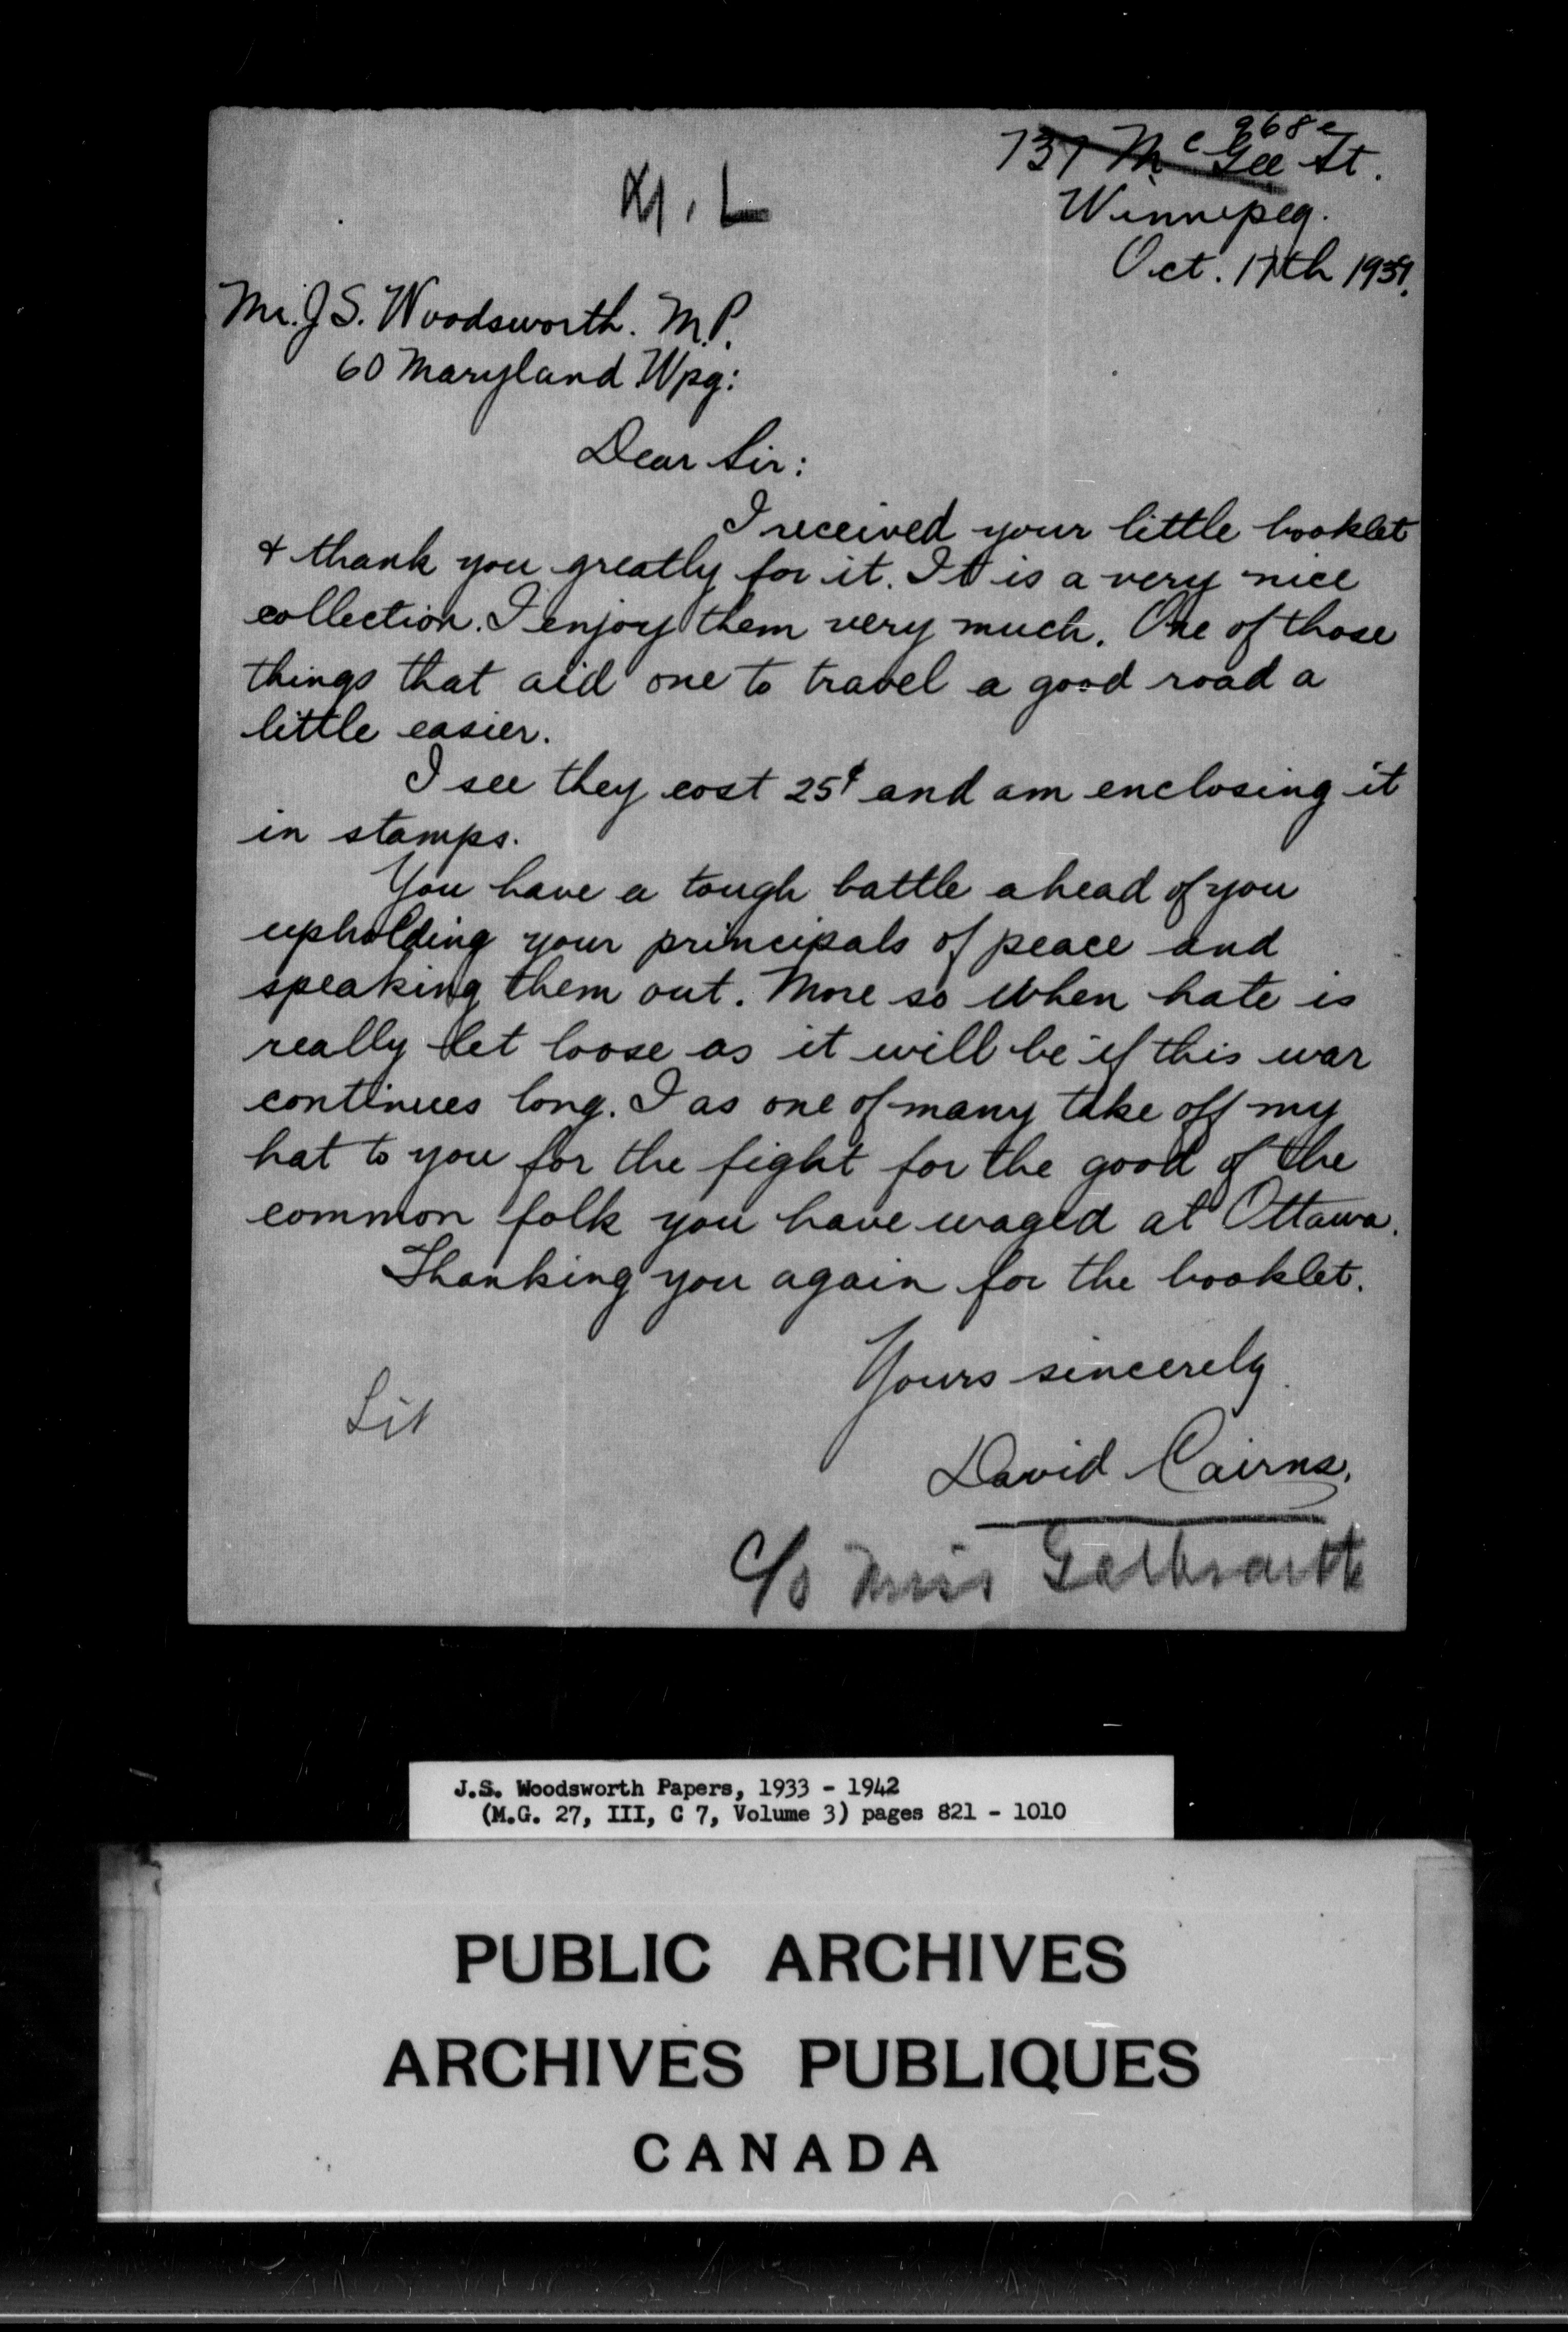 968
737 McGee St.
M. L
Winnipeg.
Oct. 17th 1939.
Mr. J S. Woodsworth. M.P.
60 Maryland Wpg:
Dear Sir:
I received your little booklet
& thank you greatly for it. It is a very nice
collection. I enjoy them very much. One of those
things that aid one to travel a good road a
little easier.
I see they cost 25¢ and am enclosing it
in stamps.
You have a tough battle ahead of you
upholding your principals of peace and
speaking them out. More so when hate is
really let loose as it will be if this war
continues long. I as one of many take off my
hat to you for the fight for the good of the
common folk you have waged at Ottawa.
Thanking you again for the booklet.
Yours sincerely
Lit
David Cairns.
c/o Miss Galbraith
J.S. Woodsworth Papers, 1933 - 1942
(M.G. 27, III, C 7, Volume 3) pages 821 - 1010
PUBLIC ARCHIVES
ARCHIVES PUBLIQUES
CANADA